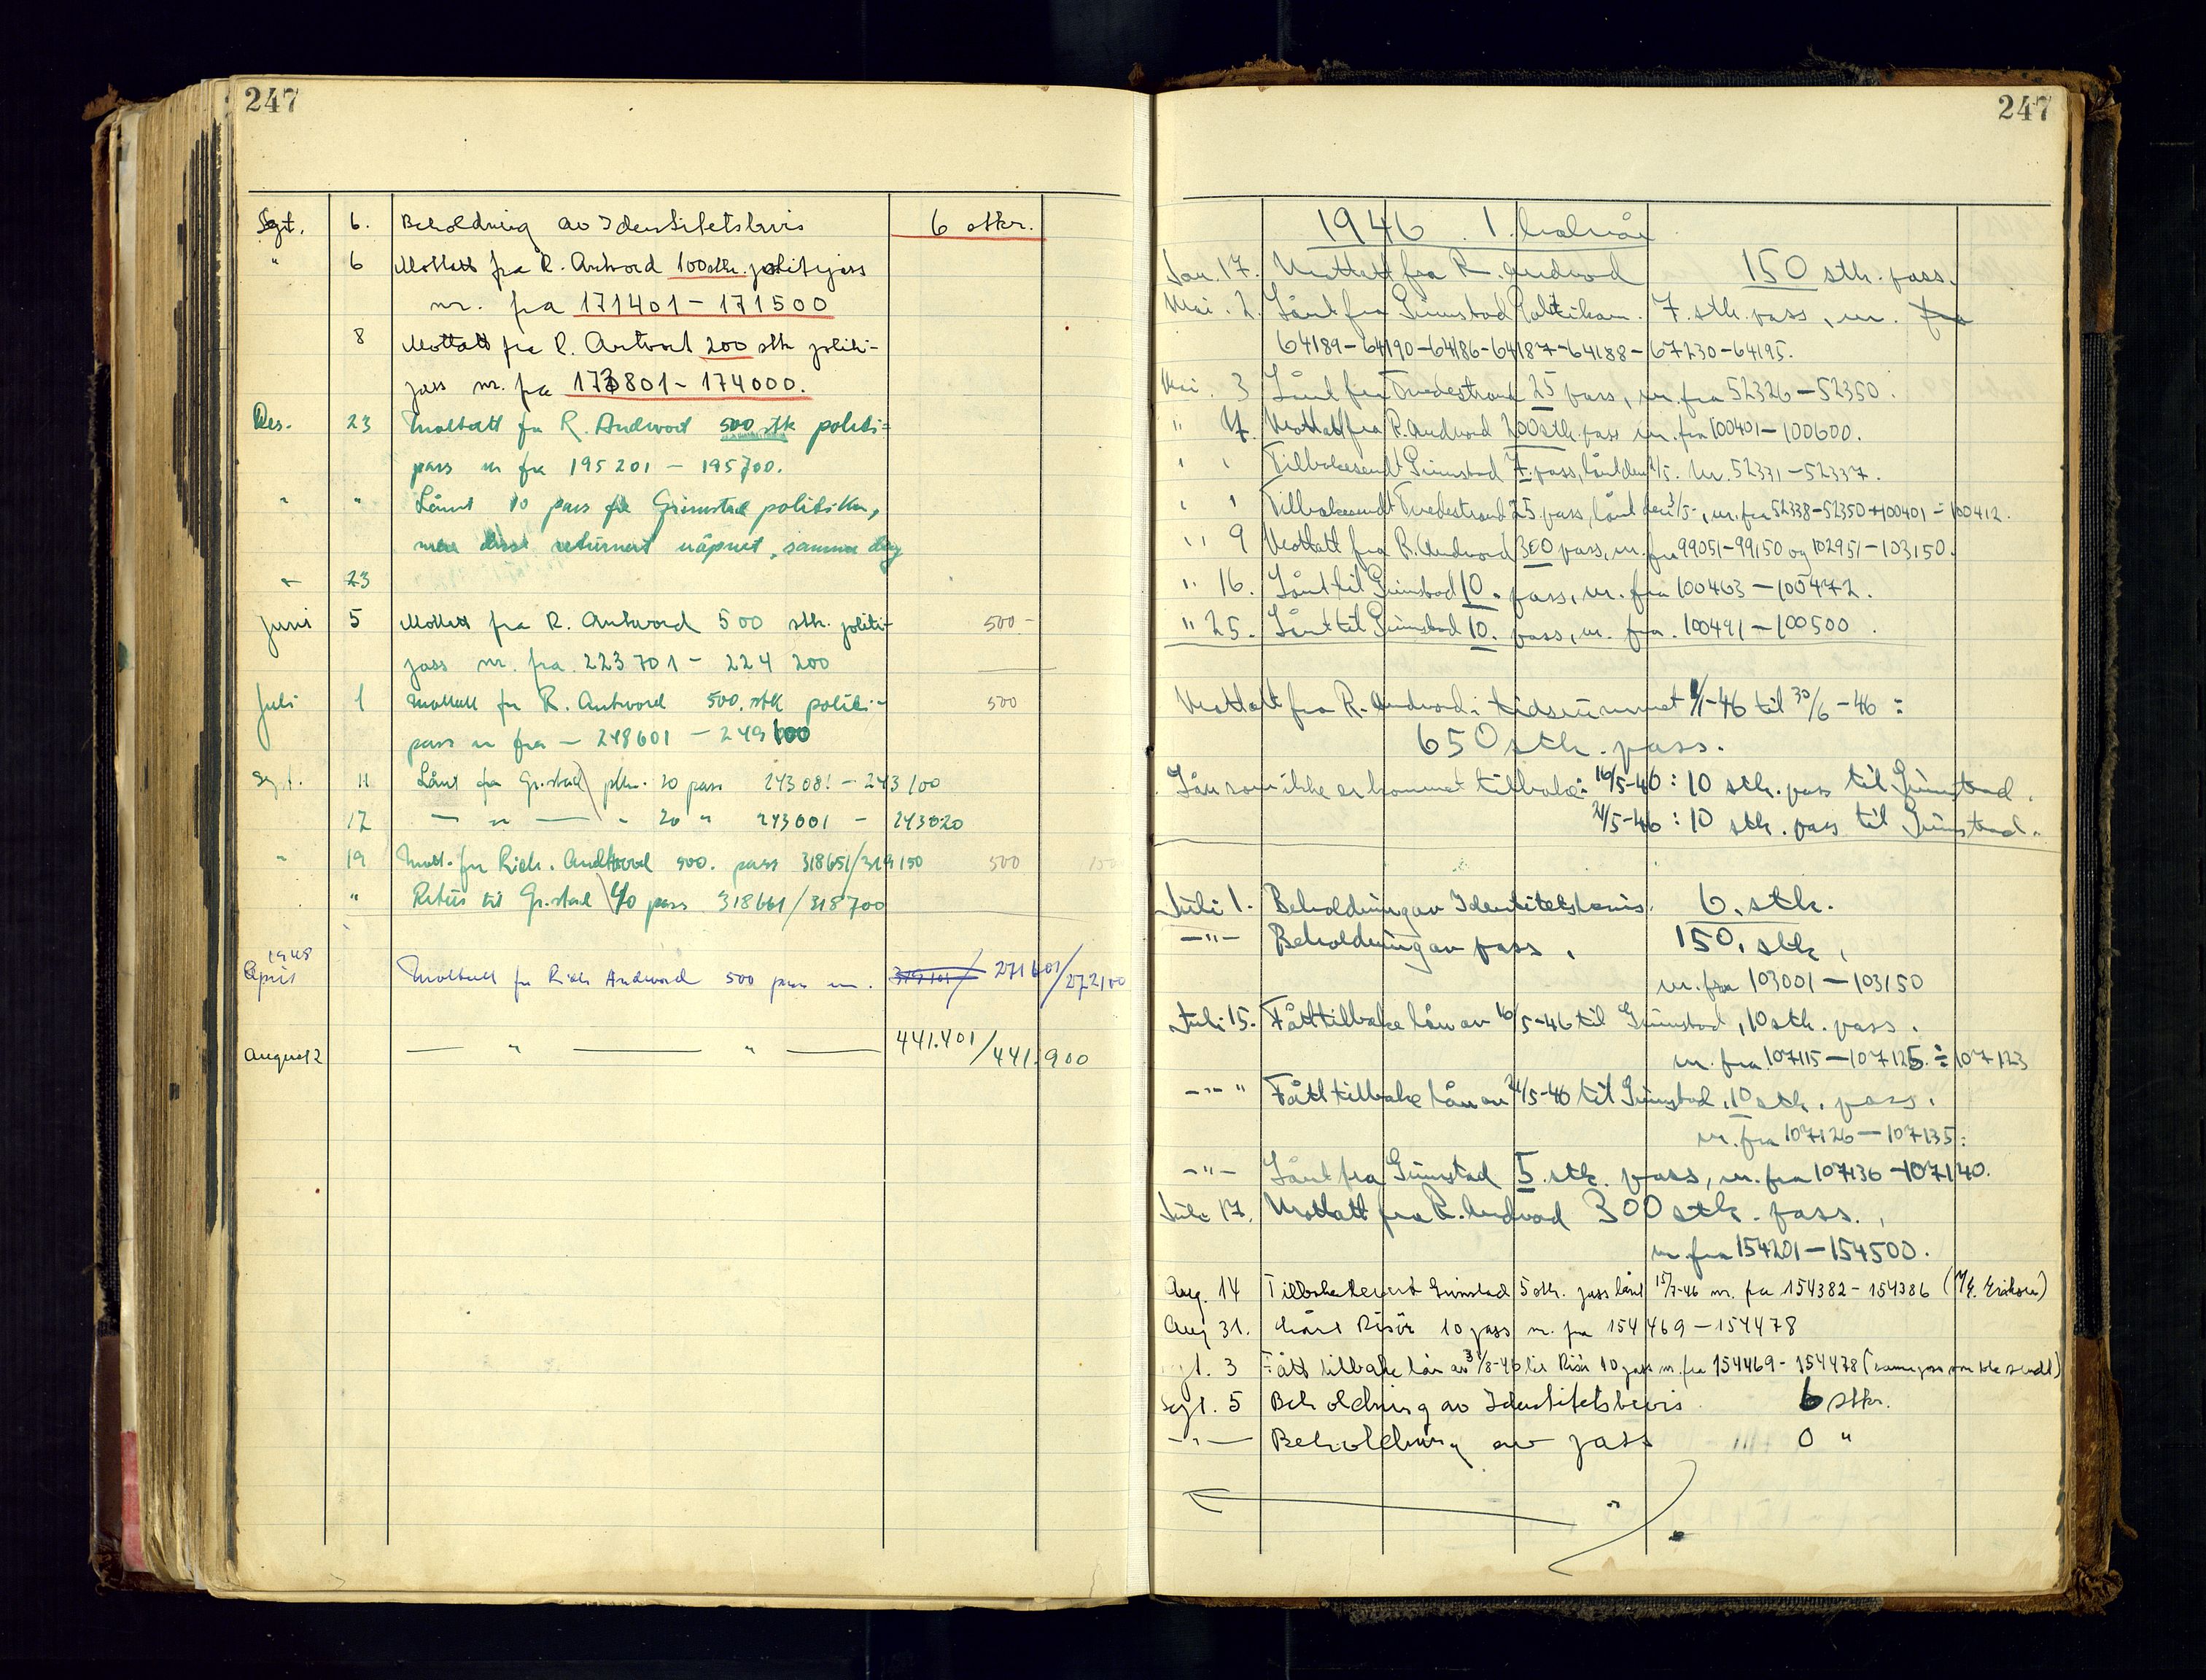 247
Sept. 6. Beholdning av Identitetsbevis 6 stkr.
" 6 Mottatt fra R. Antvord 100 stkr. politipass
nr. fra 171401 - 171500
8 Mottatt fra R. Antvort 200 stk politi-
pass nr. fra 173801 - 174000.
Des. 23 Mottatt fra R. Andvort 500 stk politi=
pass nr fra 195201 - 195700.
" " Lånt 10 pass fra Grimstad politikm,
men disse returnert uåpnet, samme dag
" 23
Juni 5 Mottatt fra R. Antvord 500 stk. politi- 500-
pass nr. fra 223701 - 224 200
Juli 1 Mottatt fra R. Antvord 500. stk politi- 500
pass nr fra - 248601 - 249100
Sept. 11 Lånt fra Gr.stad plk. 20 pass 243081 - 243100
12 — " — " 20 " 243001 - 243020
" 19 Mott. fra Rich. Andvord 500. pass 318651/319150 500
" Retur til Gr.stad 40 pass 318661/318700
1948
April Mottatt fra Rich Andvord 500 pass nr. 271601/272100
August 2 — " — " — 441.401/441.900
247
1946 1. halvår
Jan. 17. Mottatt fra R. Andvord 150 stk. pass.
Mai. 2. Lånt fra Grimstad Politikam. 7. stk. pass, nr. fra
64189-64190-64186-64187-64188-67230-64195.
Mai. 3 Lånt fra Tvedestrand 25 pass, nr. fra 52326-52350.
" 7. Mottatt fra R. Andvord 200 stk. pass nr. fra 100401-100600.
" " Tilbakesendt Grimstad 7. pass, lånt den 2/5. Nr. 52331-52337.
" " Tilbakesendt Tvedestrand 25. pass, lånt den 3/5-, nr. fra 52338-52350+100401-100412.
" 9 Mottatt fra R. Andvord 300 pass, nr. fra 99051-99150 og 102951-103150.
" 16. Lånt til Grimstad 10. pass, nr. fra 100463-100472.
" 25. Lånt til Grimstad 10. pass, nr. fra. 100491-100500.
Mottatt fra R. Andvord i tidsrummet 1/1-46 til 30/6-46 :
650 stk. pass.
Lån som ikke er kommet tilbake: 16/5-46 : 10 stk. pass til Grimstad.
24/5-46 : 10 stk. pass til Grimstad.
Juli 1. Beholdning av Identitetsbevis. 6. stk.
— " — Beholdning av pass. 150. stk.
nr. fra 103001-103150
Juli 15. Fått tilbake lån av 16/5-46 til Grimstad, 10 stk. pass.
nr. fra 107115-107125. ÷ 107123
— " " Fått tilbake lån av 24/5-46 til Grimstad, 10 stk. pass.
nr. fra 107126-107135.
— " — Lånt fra Grimstad 5. stk. pass, nr. fra 107136-107140.
Juli 17. Mottatt fra R. Andvord 300 stk. pass.,
nr. fra 154201-154500.
Aug. 14 Tilbakelevert Grimstad 5 stk. pass lånt 15/7-46 nr. fra 154382-154386
Aug 31. Lånt Risör 10 pass nr. fra 154469-154478
Sept. 3 Fått tilbake lån av 31/8-46 til Risör 10 pass nr. fra 154469-154478 (samme pass som ble sendt)
Sept. 5 Beholdning av Identitetsbevis 6 stkr.
— " — Beholdning av pass 0 "